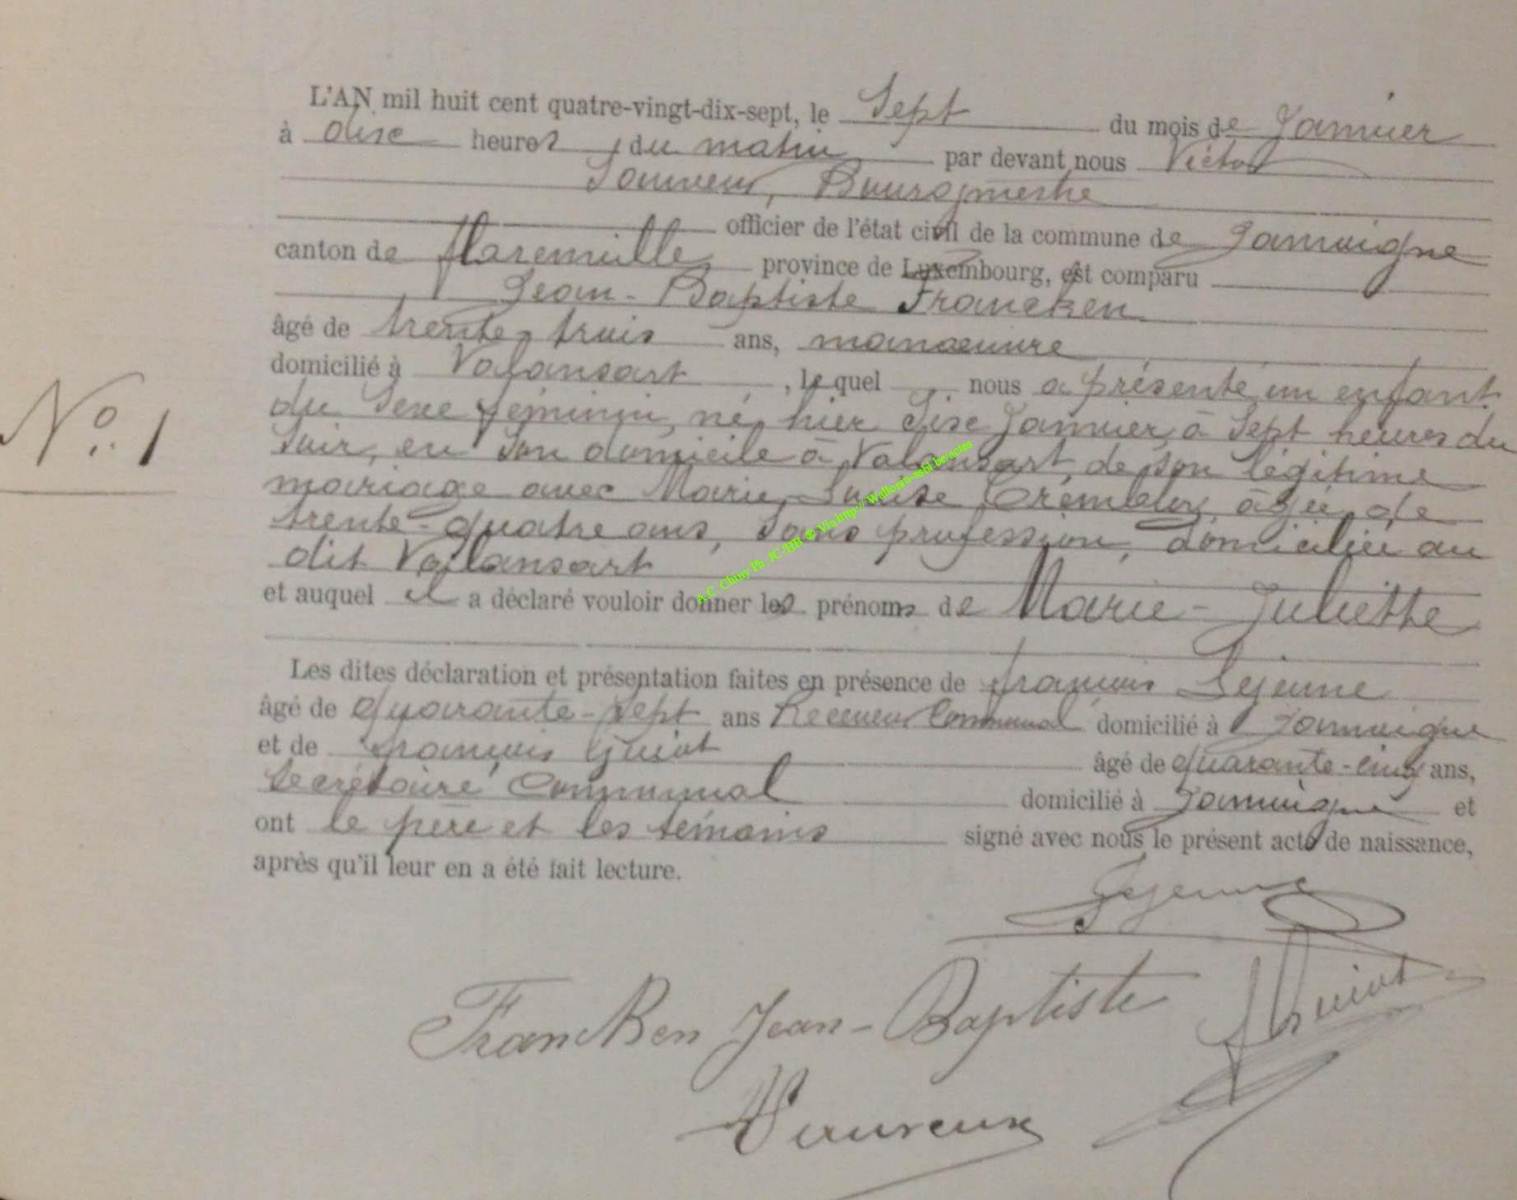 L'AN mil huit cent quatre-vingt-dix-sept, le Sept du mois de Janvier
à dix heures du matin par devant nous Victor
Bourgmestre
officier de l'état civil de la commune de Jamoigne
canton de Florenville, province de Luxembourg, est comparu
Jean-Baptiste Francken
âgé de trente-trois ans, manoeuvre
domicilié à Valansart, lequel nous a présenté un enfant
N° 1
du Sexe féminin, né hier Six Janvier, à Sept heures du
Soir, en Son domicile à Valansart, de son légitime
mariage avec Marie-Louise âgée de
trente-quatre ans, Sans profession, domiciliée au
dit Valansart
et auquel il a déclaré vouloir donner les prénoms de Marie-Juliette
Les dites déclaration et présentation faites en présence de François Lejeune
âgé de quarante-Sept ans Receveur Communal domicilié à Jamoigne
et de François Guiot âgé de quarante-cinq ans,
Secrétaire Communal domicilié à Jamoigne et
ont le père et les témoins signé avec nous le présent acte de naissance,
après qu'il leur en a été fait lecture.
Lejeune
Francken Jean-Baptiste
Guiot